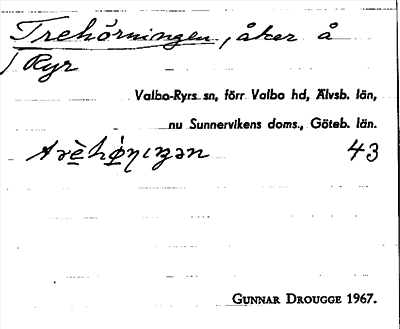 Trehörningen, åker å
Ryr
Valbo-Ryrs sn, förr Valbo hd, Älvsb. län,
nu Sunnervikens doms., Göteb. län.
43
GUNNAR DROUGGE 1967.